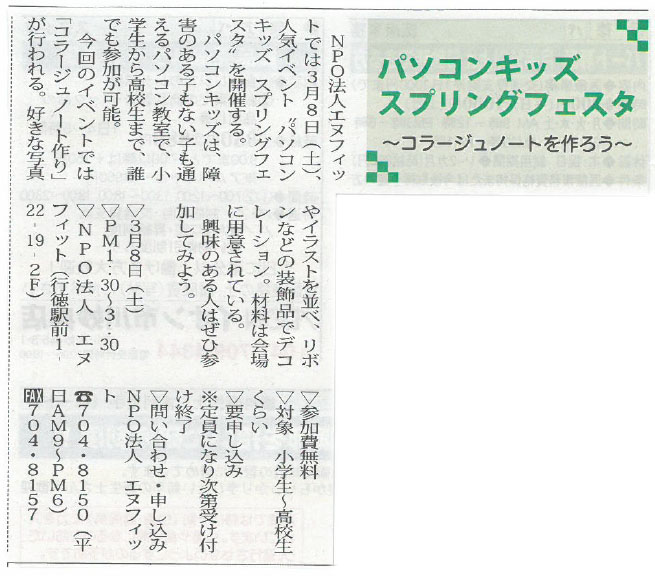 パソコンキッズ
スプリングフェスタ
～コラージュノートを作ろう～
NPO法人エヌフィッ
トでは３月８日（土）、
人気イベント〝パソコン
キッズ スプリングフェ
スタ〟を開催する。
パソコンキッズは、障
害のある子もない子も通
えるパソコン教室で、小
学生から高校生まで、誰
でも参加が可能。
今回のイベントでは
「コラージュノート作り」
が行われる。好きな写真
やイラストを並べ、リボ
ンなどの装飾品でデコ
レーション。材料は会場
に用意されている。
興味のある人はぜひ参
加してみよう。
▽３月８日（土）
▽PM1：30～3：30
▽NPO法人 エヌ
フィット（行徳駅前１-
22-19-2F）
▽参加費無料
▽対象 小学生～高校生
くらい
▽要申し込み
※定員になり次第受け付
け終了
▽問い合わせ・申し込み
NPO法人 エヌフィッ
ト
☎704・8150（平
日AM9～PM6）
FAX704・8157